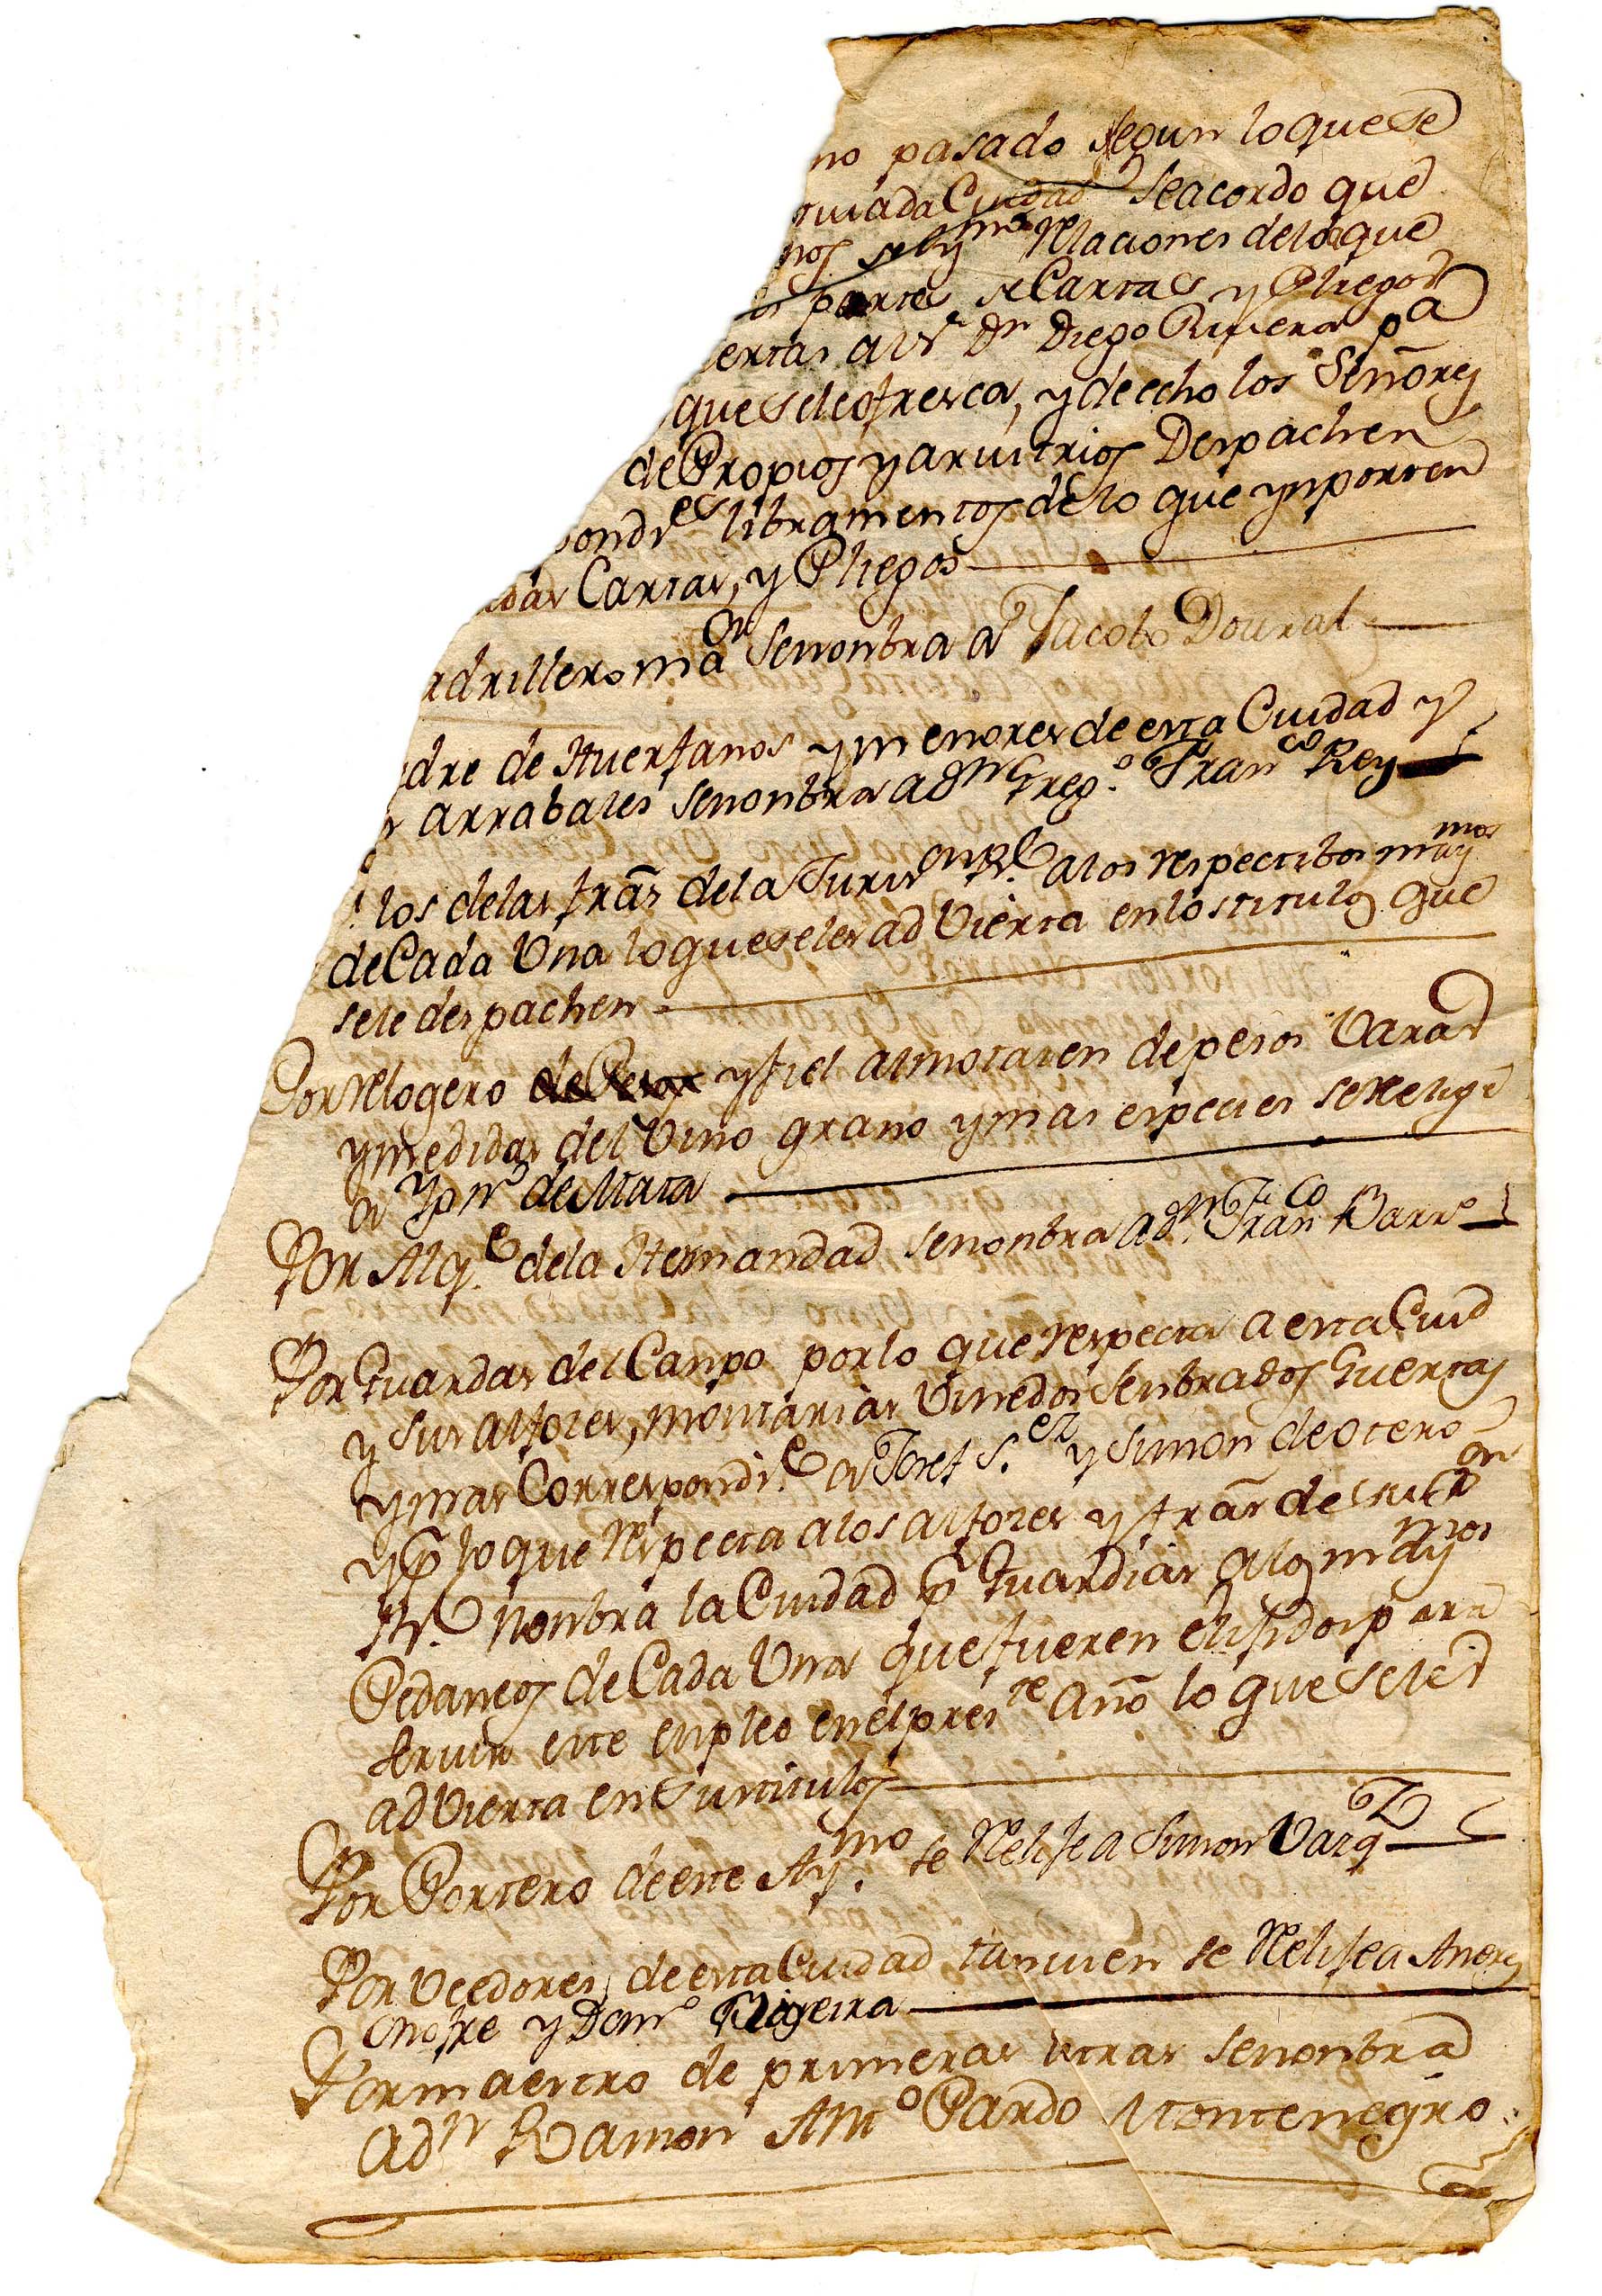 no pasado segun lo que se
Ciudad se acordo que
relaciones de lo que
parte de Cartas y Pliegos
ertas a Dn Diego Rivera pa
que se le ofresca, y de echo los Señores
de Propios y arvitrios Despachen
pondtes libramentos de lo que ynporten
adas Cartas, y Pliegos
adrillero mor se nonbra a Jacobo Doural
adre de Huerfanos y menores de esta Ciudad y
s arrabales se nonbra a Dn Grego. Franco Rey
los de las frãs de la Jurisdon Rl. a los respectibos maymos
de Cada Una lo que se les ad Vierta en los titulos que
se le despachen
Por relogero y fiel almotasen de pesos Varas
y medidas del Vino grano y mas especies se relige
a de Mata
Por Alqe. de la Hermandad se nonbra a Dn. Franco Barro
Por Guardas del Canpo por lo que respecta a esta Ciud
y sus alfozes, montañas Viñedos senbrados Guertas
y mas Correspondte. a Josef S.ez y Simon de Otero
y p lo que respecta a los alfozes y frãs de
Rl. nonbra la Ciudad p Guardias a los maymos
Pedaneos de Cada Una que fueren elisidos para
servir este enpleo en el preste año lo que se les
ad Vierta en sus titulos
Por Portero de este Aymo. se relise a Simon Vazqz
Por Veedores de esta Ciudad tanvien se relise a Andres
Onofre y Domo Figeira
Por maestro de primeras letras se nonbra
a Dn Ramon Anto Pardo Montenegro